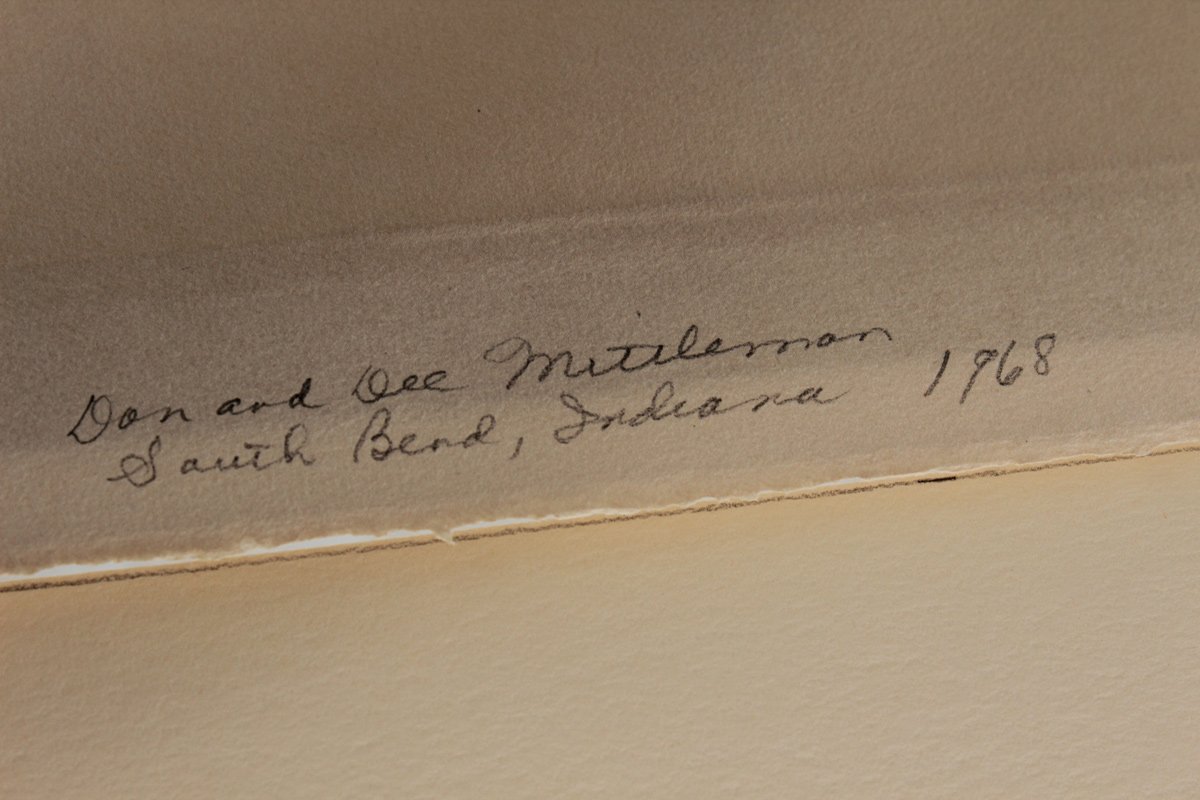 Don and Dee Mittleman
South Bend, Indiana 1968